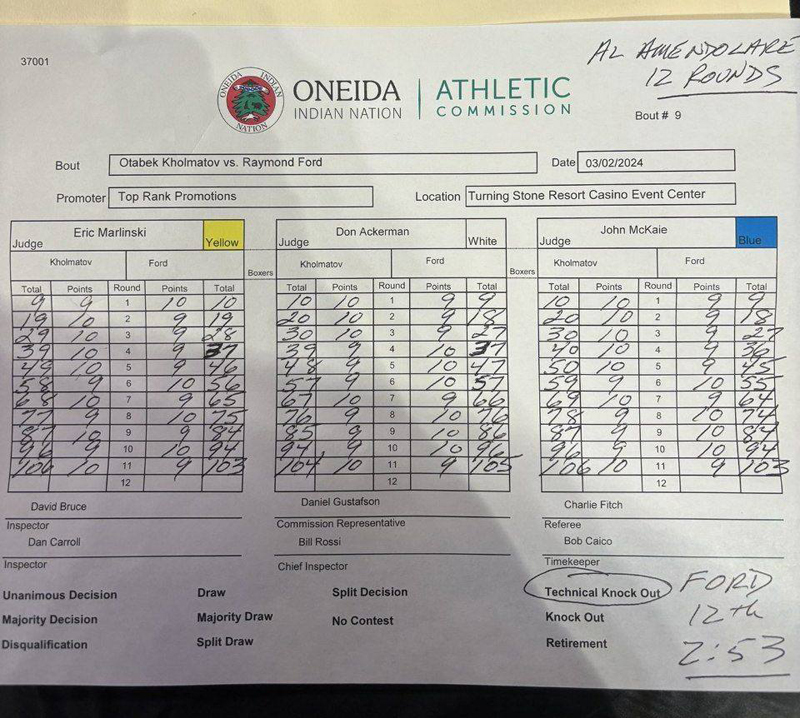 37001
AL AMENDOLARE
12 ROUNDS
ONEIDA INDIAN NATION
ONEIDA
INDIAN NATION
ATHLETIC
COMMISSION
Bout # 9
Bout Otabek Kholmatov vs. Raymond Ford Date 03/02/2024
Promoter Top Rank Promotions Location Turning Stone Resort Casino Event Center
Judge Eric Marlinski Yellow Judge Don Ackerman White Judge John McKaie Blue
Kholmatov Ford Boxers Kholmatov Ford Boxers Kholmatov Ford
Total Points Round Points Total Total Points Round Points Total Total Points Round Points Total
9 9 1 10 10 10 10 1 9 9 10 10 1 9 9
19 10 2 9 19 20 10 2 9 18 20 10 2 9 18
29 10 3 9 28 30 10 3 9 27 30 10 3 9 27
39 10 4 9 37 39 9 4 10 37 40 10 4 9 36
49 10 5 9 46 48 9 5 10 47 50 10 5 9 45
58 9 6 10 56 57 9 6 10 57 59 9 6 10 55
68 10 7 9 65 67 10 7 9 66 69 10 7 9 64
77 9 8 10 75 76 9 8 10 76 78 9 8 10 74
87 10 9 9 84 85 9 9 10 86 87 9 9 10 84
96 9 10 10 94 94 9 10 10 96 96 9 10 10 94
106 10 11 9 103 104 10 11 9 105 106 10 11 9 103
12 12 12
David Bruce Daniel Gustafson Charlie Fitch
Inspector Commission Representative Referee
Dan Carroll Bill Rossi Bob Caico
Inspector Chief Inspector Timekeeper
Unanimous Decision Draw Split Decision Technical Knock Out FORD
Majority Decision Majority Draw No Contest Knock Out 12th
Disqualification Split Draw Retirement 2:53